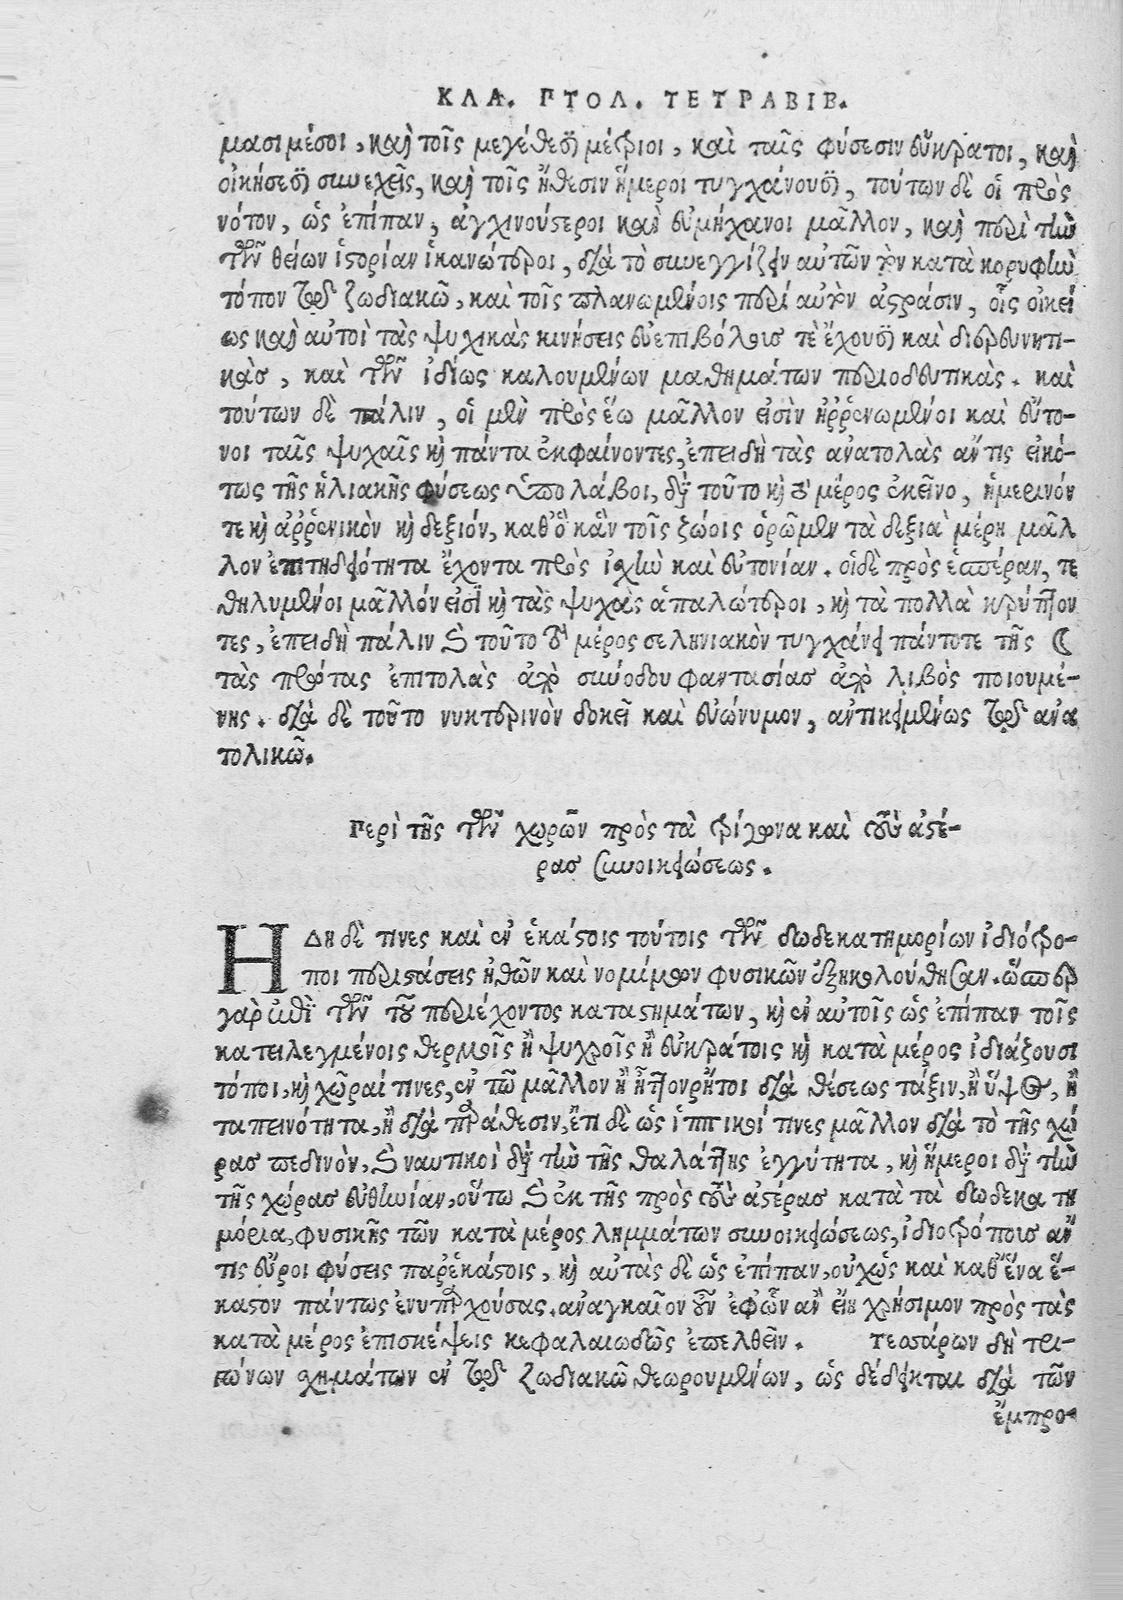 ΚΛΑ. ΠΤΟΛ. ΤΕΤΡΑΒΙΒ.
μασι μέσοι, καὶ τοῖς μεγέθεσι μέτριοι, καὶ ταῖς φύσεσιν εὔκρατοι, καὶ
οἰκήσεσι συνεχεῖς, καὶ τοῖς ἤθεσιν ἥμεροι τυγχάνουσι, τούτων δὲ οἱ πρὸς
νότον, ὡς ἐπίπαν, ἀγχινούστεροι καὶ εὐμήχανοι μᾶλλον, καὶ περὶ τὴν
τῶν θείων ἱστορίαν ἱκανώτεροι, διὰ τὸ συνεγγίζειν αὐτῶν τὸν κατὰ κορυφὴν
τόπον τοῦ ζωδιακοῦ, καὶ τοῖς πλανωμένοις περὶ αὐτὸν ἀστράσιν, οἷς οἰκεί
ως καὶ αὐτοὶ τὰς ψυχικὰς κινήσεις εὐεπιβόλους τὲ ἔχουσι καὶ διερευνητι-
κὰς, καὶ τῶν ἰδίως καλουμένων μαθημάτων περιοδευτικάς. καὶ
τούτων δὲ πάλιν, οἱ μὲν πρὸς ἕω μᾶλλον εἰσὶν ἠῤῥενωμένοι καὶ εὔτο-
νοι ταῖς ψυχαῖς καὶ πάντα ἐκφαίνοντες, ἐπειδὴ τὰς ἀνατολὰς ἄν τις εἰκό-
τως τῆς ἡλιακῆς φύσεως ὑπολάβοι, διὸ τοῦτο καὶ τὸ μέρος ἐκεῖνο, ἡμερινόν
τε καὶ ἀῤῥενικὸν καὶ δεξιόν, καθ’ ὃ κἂν τοῖς ζώοις ὁρῶμεν τὰ δεξιὰ μέρη μᾶλ
λον ἐπιτηδειότητα ἔχοντα πρὸς ἰσχὺν καὶ εὐτονίαν. οἱ δὲ πρὸς ἑσπέραν, τε
θηλυμένοι μᾶλλόν εἰσι καὶ τὰς ψυχὰς ἁπαλώτεροι, καὶ τὰ πολλὰ κρύπτον
τες, ἐπειδὴ πάλιν καὶ τοῦτο τὸ μέρος σεληνιακὸν τυγχάνει πάντοτε τῆς ☾
τὰς πρώτας ἐπιτολὰς ἀπὸ συνόδου φαντασίας ἀπὸ λιβὸς ποιουμέ-
νης. διὰ δὲ τοῦτο νυκτερινὸν δοκεῖ καὶ εὐώνυμον, ἀντικειμένως τοῦ ἀνα
τολικοῦ.
Περὶ τῆς τῶν χωρῶν πρὸς τὰ τρίγωνα καὶ τοὺς ἀστέ-
ρας συνοικειώσεως.
ΗΔη δὲ τινες καὶ ἐν ἑκάστοις τούτοις τῶν δωδεκατημορίων ἰδιότρο-
ποι περιστάσεις ἠθῶν καὶ νομίμων φυσικῶν ἐξηκολούθησαν. ὥσπερ
γὰρ ἐπὶ τῶν τοῦ περιέχοντος καταστημάτων, καὶ ἐν αὐτοῖς ὡς ἐπίπαν τοῖς
κατειλεγμένοις θερμοῖς ἢ ψυχροῖς ἢ εὐκράτοις καὶ κατὰ μέρος ἰδιάζουσι
τόποι, καὶ χῶραί τινες, ἐν τῷ μᾶλλον ἢ ἧττον ῥήτοι διὰ θέσεως τάξιν, ἢ ὕψος, ἢ
ταπεινότητα, ἢ διὰ παράθεσιν, ἔτι δὲ ὡς ἱππικοί τινες μᾶλλον διὰ τὸ τῆς χώ
ρας πεδινὸν, καὶ ναυτικοὶ διὰ τὴν τῆς θαλάττης ἐγγύτητα, καὶ ἥμεροι διὰ τὴν
τῆς χώρας εὐθηνίαν, οὕτω καὶ ἐκ τῆς πρὸς τοὺς ἀστέρας κατὰ τὰ δωδεκατη
μόρια, φυσικῆς τῶν κατὰ μέρος λημμάτων συνοικειώσεως, ἰδιοτρόπους ἄν
τις εὕροι φύσεις παρ’ ἑκάστοις, καὶ αὐτὰς δὲ ὡς ἐπίπαν, οὐχ ὡς καὶ καθ’ ἕνα ἕ-
καστον πάντως ἐνυπαρχούσας. ἀναγκαῖον οὖν ἐφ’ ὧν ἂν εἴη χρήσιμον πρὸς τὰς
κατὰ μέρος ἐπισκέψεις κεφαλαιωδῶς ἐπελθεῖν. Τεσσάρων δὴ τρι-
γώνων σχημάτων ἐν τῷ ζωδιακῷ θεωρουμένων, ὡς δέδεικται διὰ τῶν
ἔμπρο-